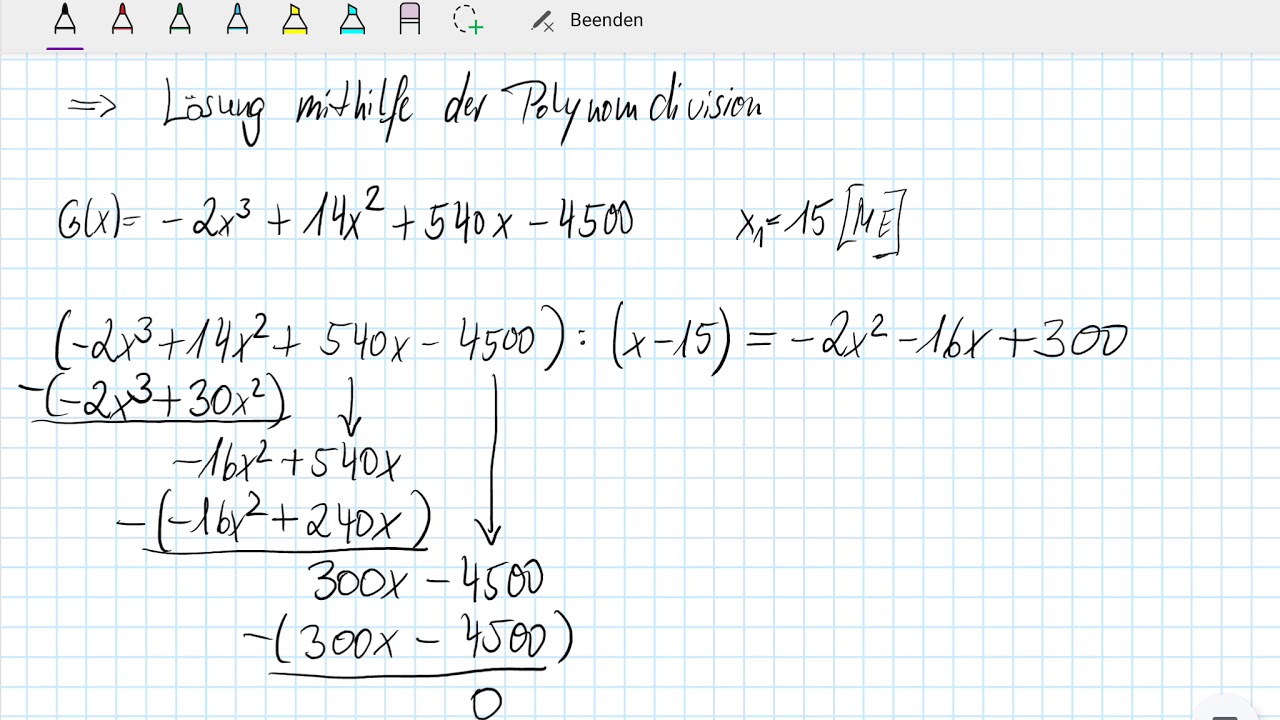 Beenden
⇒ Lösung mithilfe der Polynomdivision
G(x)= -2x³ + 14x² + 540x - 4500 x₁=15 [ME]
(-2x³+14x²+ 540x - 4500) : (x-15) = -2x² -16x +300
-(-2x³+30x²)
-16x²+540x
-(-16x²+240x)
300x - 4500
-(300x - 4500)
0